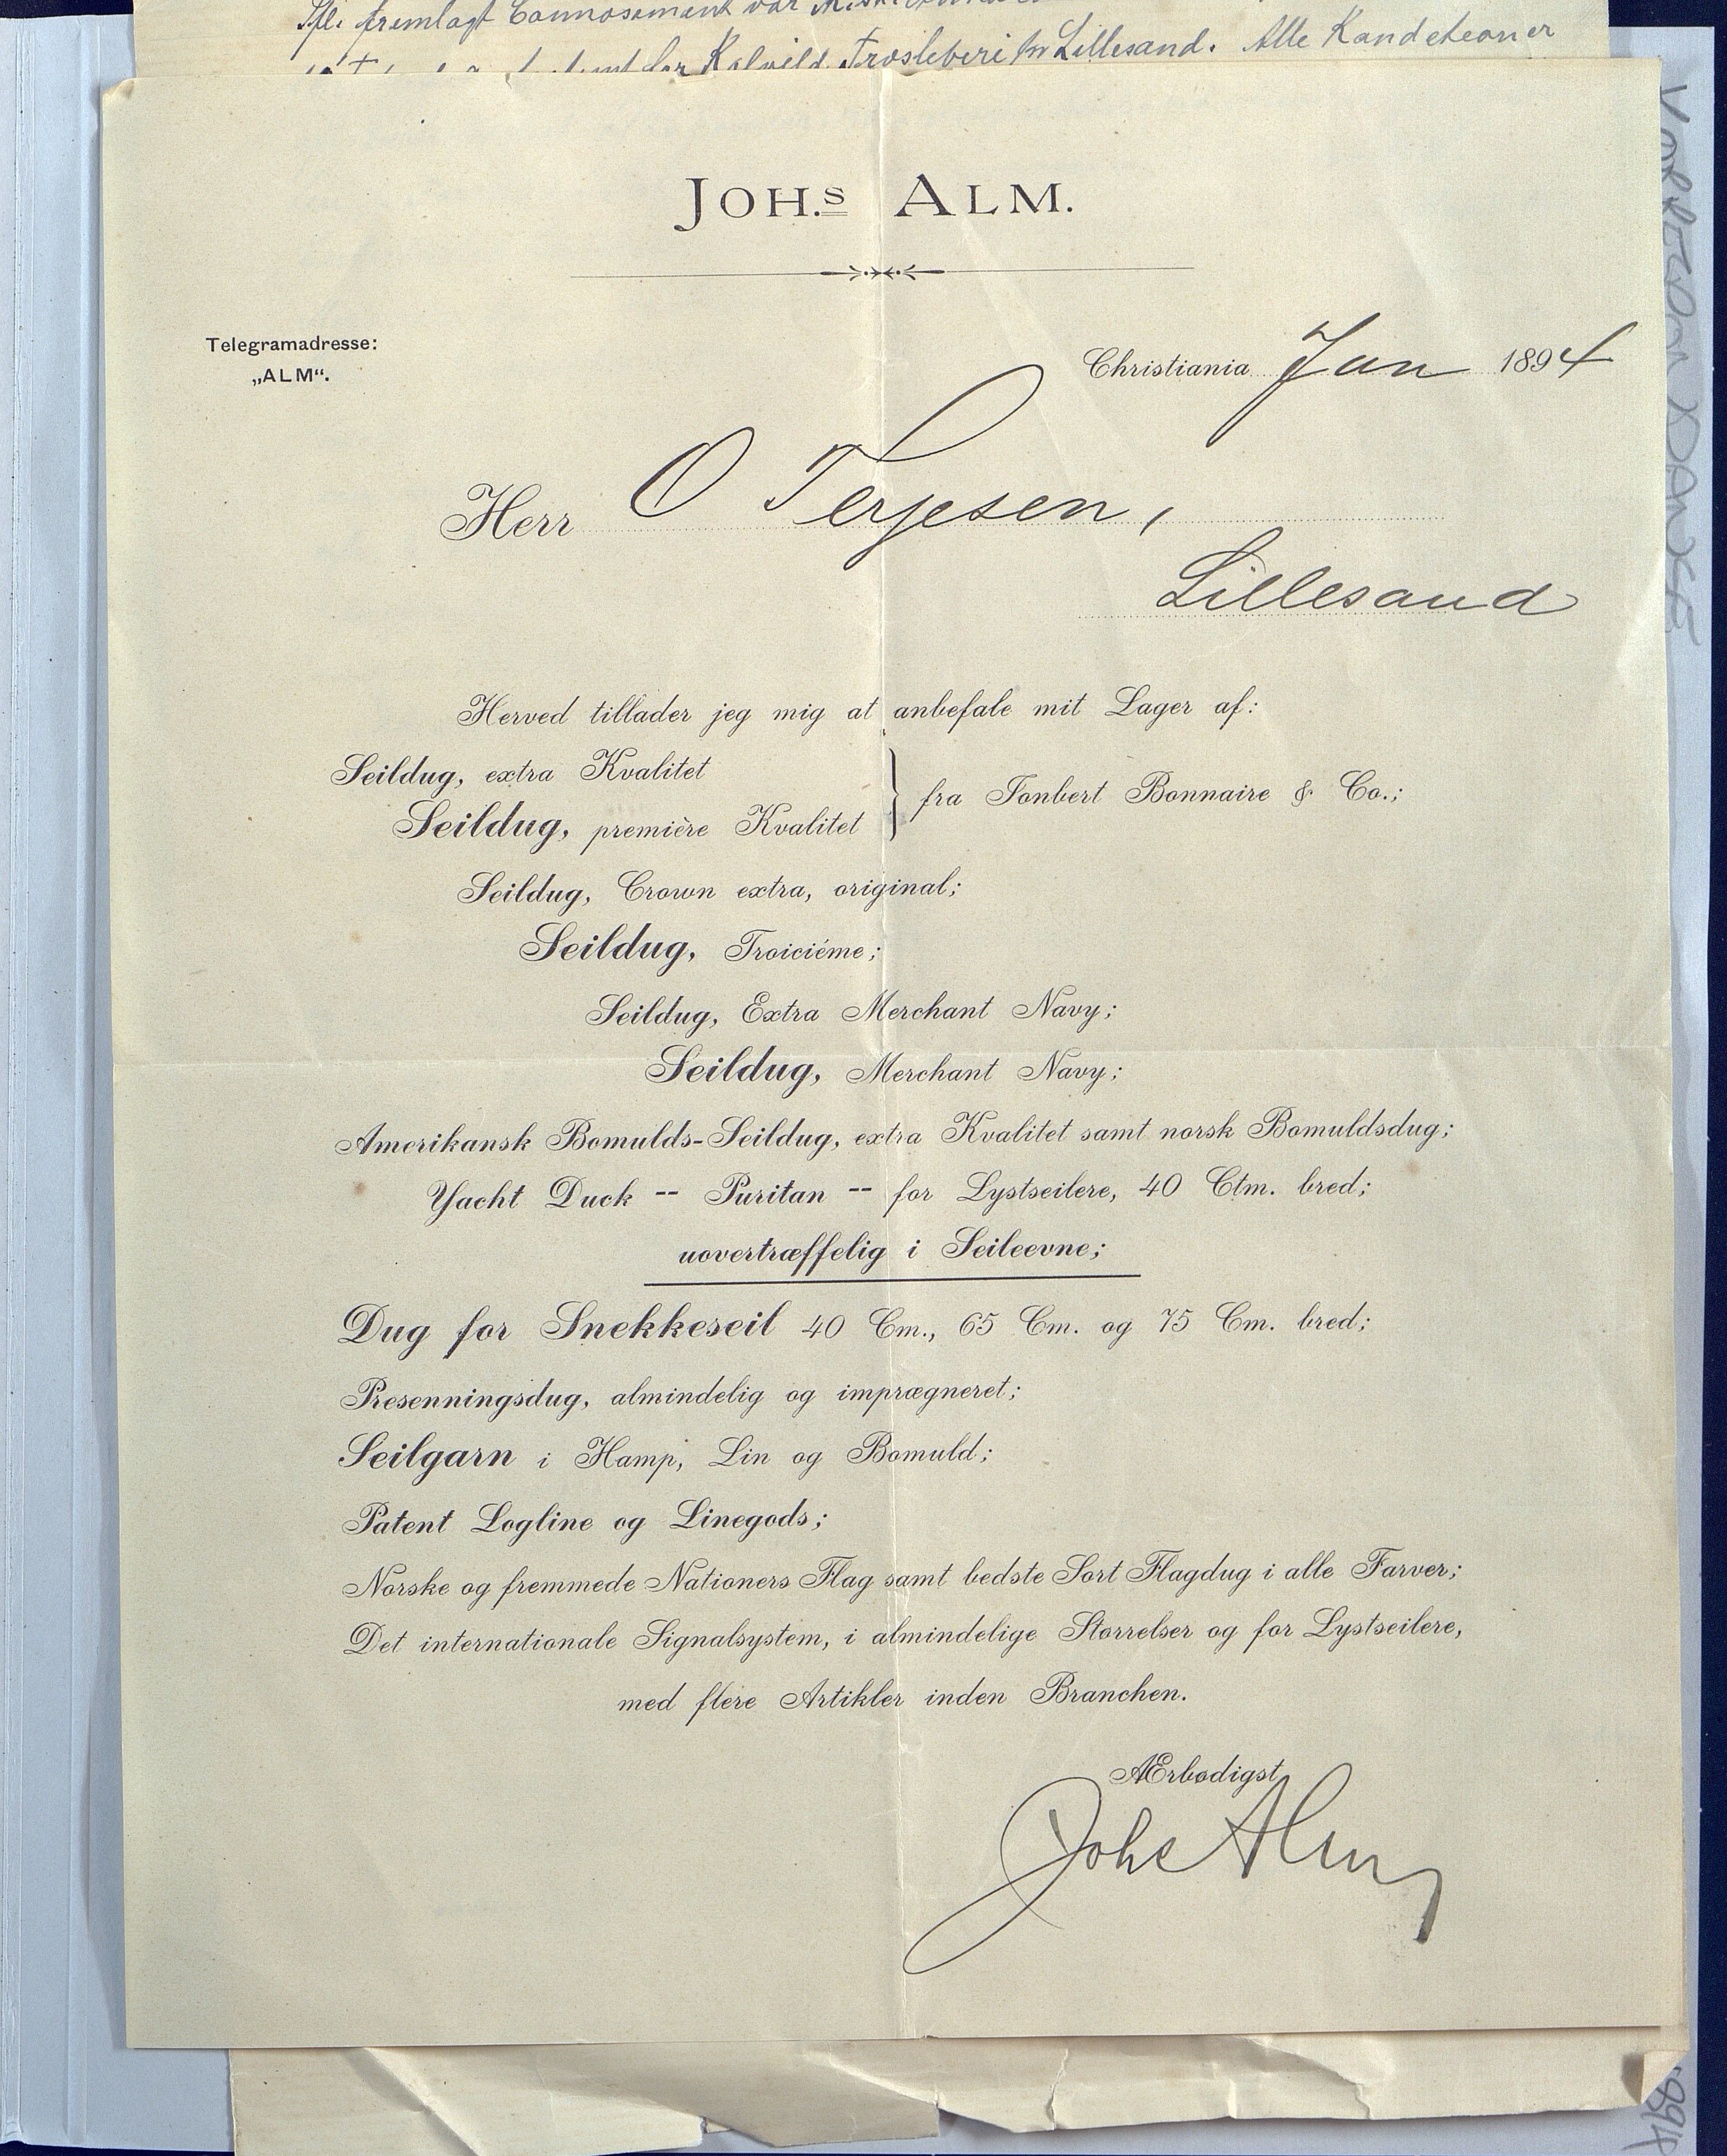 fremlagt Connosement var
Lillesand. Alle
JOH.s ALM.
Telegramadresse:
„ALM“.
Christiania Jan 1894
Herr O Terjesen,
Lillesand
Herved tillader jeg mig at anbefale mit Lager af:
Seildug, extra Kvalitet
Seildug, première Kvalitet
} fra Jonbert Bonnaire & Co.;
Seildug, Crown extra, original;
Seildug, Troiciéme;
Seildug, Extra Merchant Navy;
Seildug, Merchant Navy;
Amerikansk Bomulds-Seildug, extra Kvalitet samt norsk Bomuldsdug;
Yacht Duck -- Puritan -- for Lystseilere, 40 Ctm. bred;
uovertræffelig i Seileevne;
Dug for Snekkeseil 40 Cm., 65 Cm. og 75 Cm. bred;
Presenningsdug, almindelig og imprægneret;
Seilgarn i Hamp, Lin og Bomuld;
Patent Logline og Linegods;
Norske og fremmede Nationers Flag samt bedste Sort Flagdug i alle Farver;
Det internationale Signalsystem, i almindelige Størrelser og for Lystseilere,
med flere Artikler inden Branchen.
Ærbødigst
Johs Alm